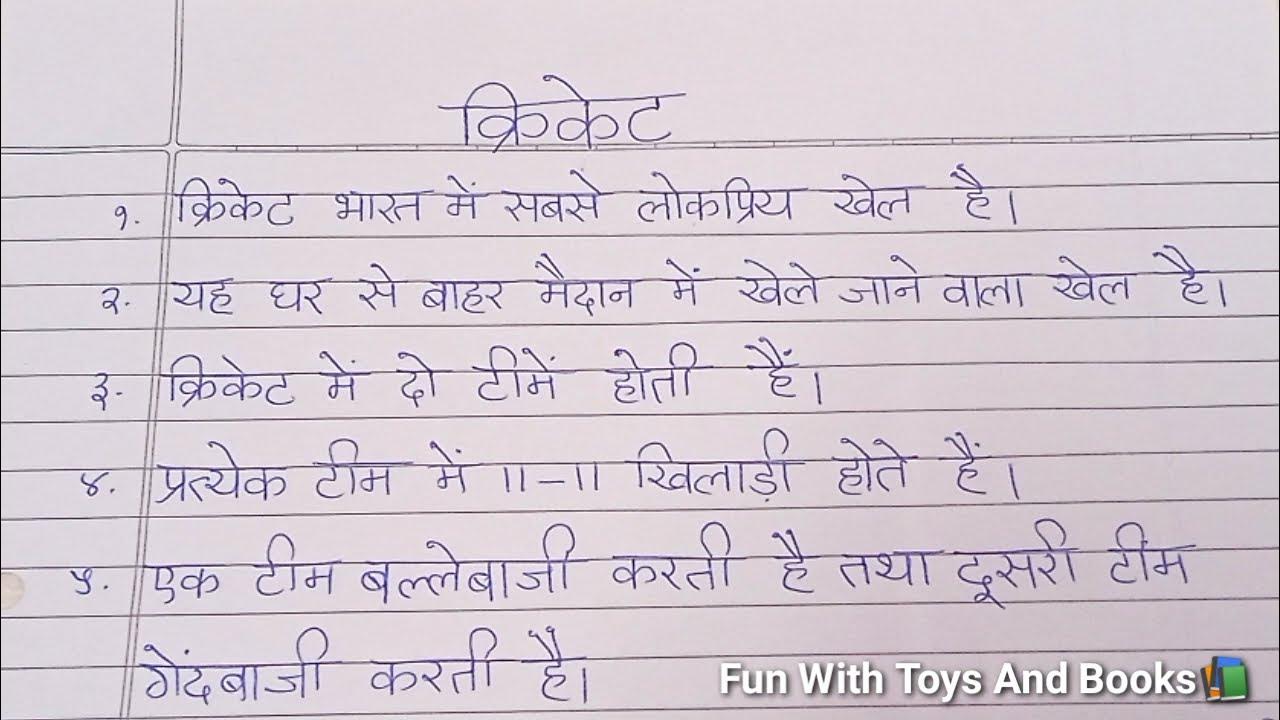 क्रिकेट
१. क्रिकेट भारत में सबसे लोकप्रिय खेल है।
२. यह घर से बाहर मैदान में खेले जाने वाला खेल है।
३. क्रिकेट में दो टीमें होती हैं।
४. प्रत्येक टीम में 11-11 खिलाड़ी होते हैं।
५. एक टीम बल्लेबाजी करती है तथा दूसरी टीम
गेंदबाजी करती है।
Fun With Toys And Books